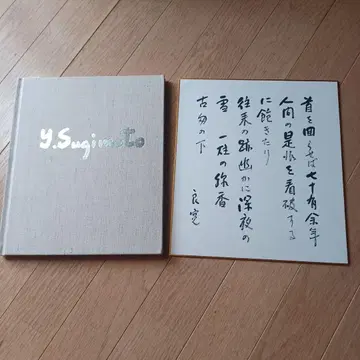 Y.Sugimoto
首を回らせば七十有余年
人間の是非を看破する
に飽きたり
往来の跡幽かに深夜の
雪 一炷の線香
古匆の下
良寛